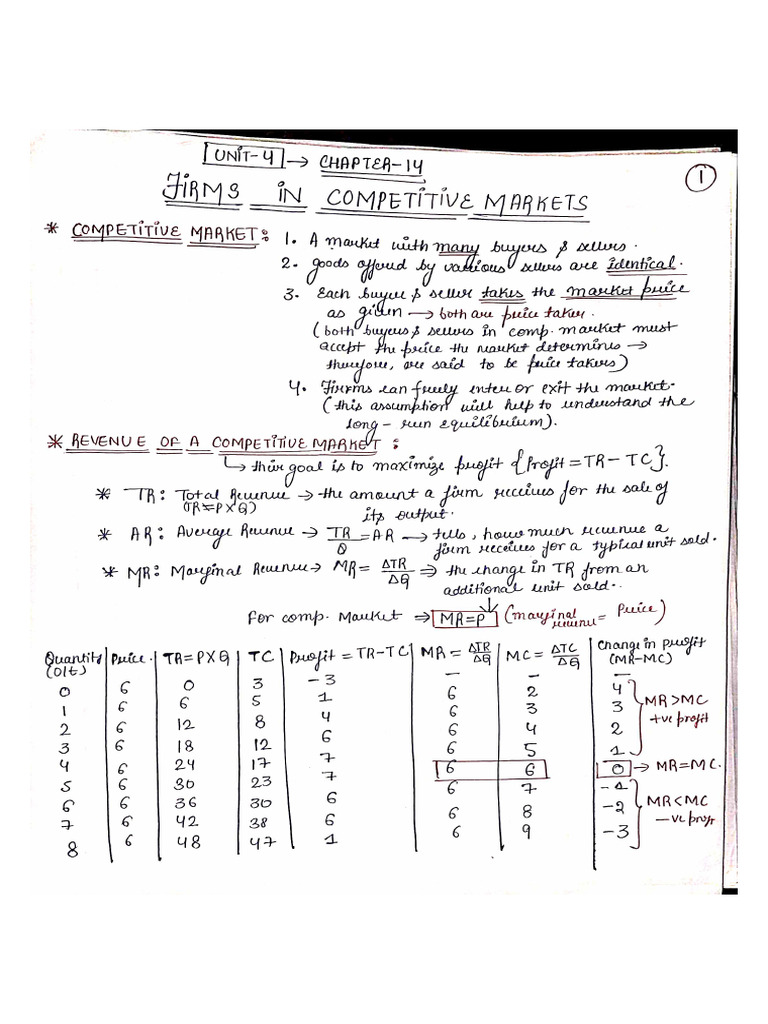 UNIT-4 → CHAPTER-14
1
FIRMS IN COMPETITIVE MARKETS
* COMPETITIVE MARKET: 1. A market with many buyers & sellers.
2. goods offered by various sellers are identical.
3. Each buyer & seller takes the market price
as given → both are price taker.
(both buyers & sellers in comp. market must
accept the price the market determines →
therefore, are said to be price takers)
4. Firms can freely enter or exit the market.
(this assumption will help to understand the
long-run equilibrium).
* REVENUE OF A COMPETITIVE MARKET:
↳ their goal is to maximize profit {Profit = TR - TC}.
* TR: Total Revenue → the amount a firm receives for the sale of
(TR = P X Q) its output.
* AR: Average Revenue → TR/Q = AR → tells, how much revenue a
firm receives for a typical unit sold.
* MR: Marginal Revenue → MR = ΔTR/ΔQ ⇒ the change in TR from an
additional unit sold.
For comp. Market ⇒ MR=P (marginal revenue = Price)
Quantity (Olt) | Price. | TR = P X Q | TC | Profit = TR - TC | MR = ΔTR/ΔQ | MC = ΔTC/ΔQ | Change in profit (MR-MC)
0 | 6 | 0 | 3 | -3 | - | - | -
1 | 6 | 6 | 5 | 1 | 6 | 2 | 4
2 | 6 | 12 | 8 | 4 | 6 | 3 | 3 MR>MC
3 | 6 | 18 | 12 | 6 | 6 | 4 | 2 +ve profit
4 | 6 | 24 | 17 | 7 | 6 | 5 | 1
5 | 6 | 30 | 23 | 7 | 6 | 6 | 0 → MR=MC.
6 | 6 | 36 | 30 | 6 | 6 | 7 | -1
7 | 6 | 42 | 38 | 6 | 6 | 8 | -2 MR<MC
8 | 6 | 48 | 47 | 1 | 6 | 9 | -3 -ve profit